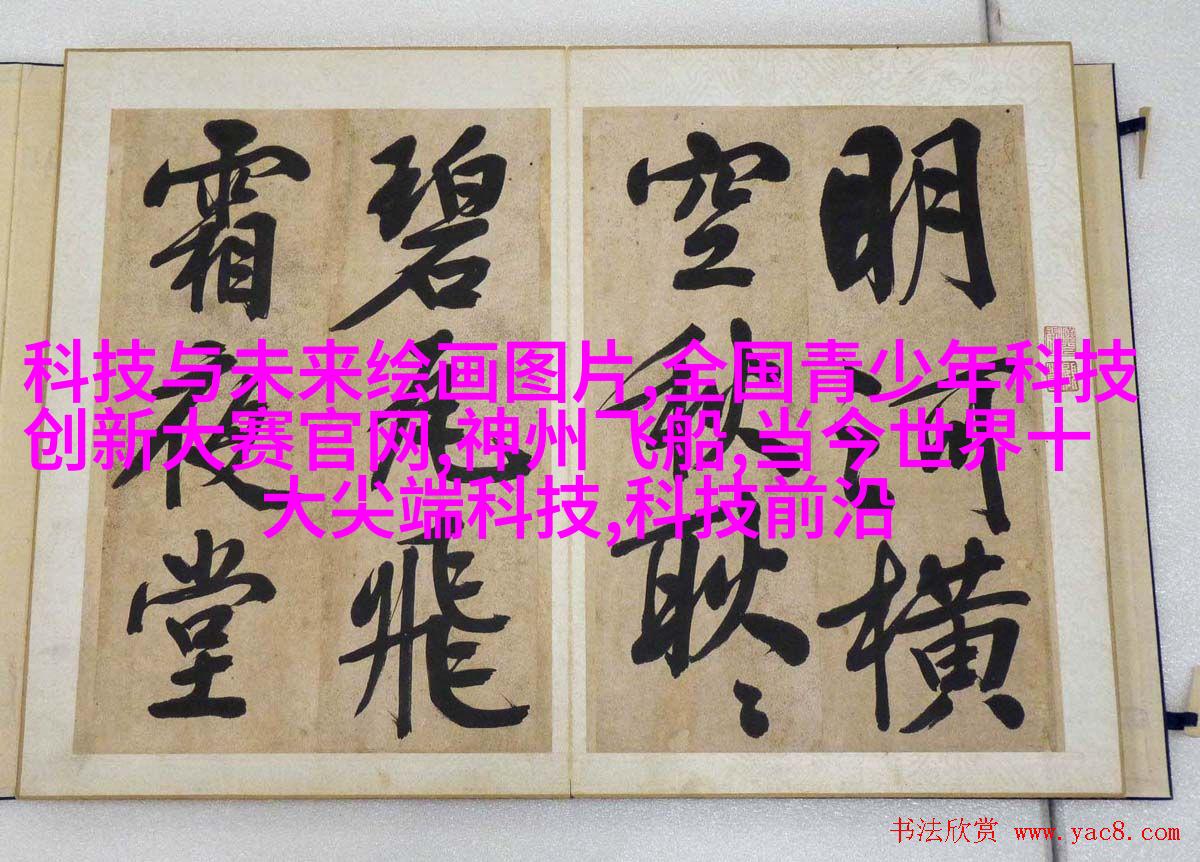 明河橫
空秋耿〻
碧瓦飛
霜夜堂
科技与未来绘画图片,全国青少年科技
创新大赛官网,神州飞船,当今世界十
大尖端科技,科技前沿
书法欣赏 www.yac8.com